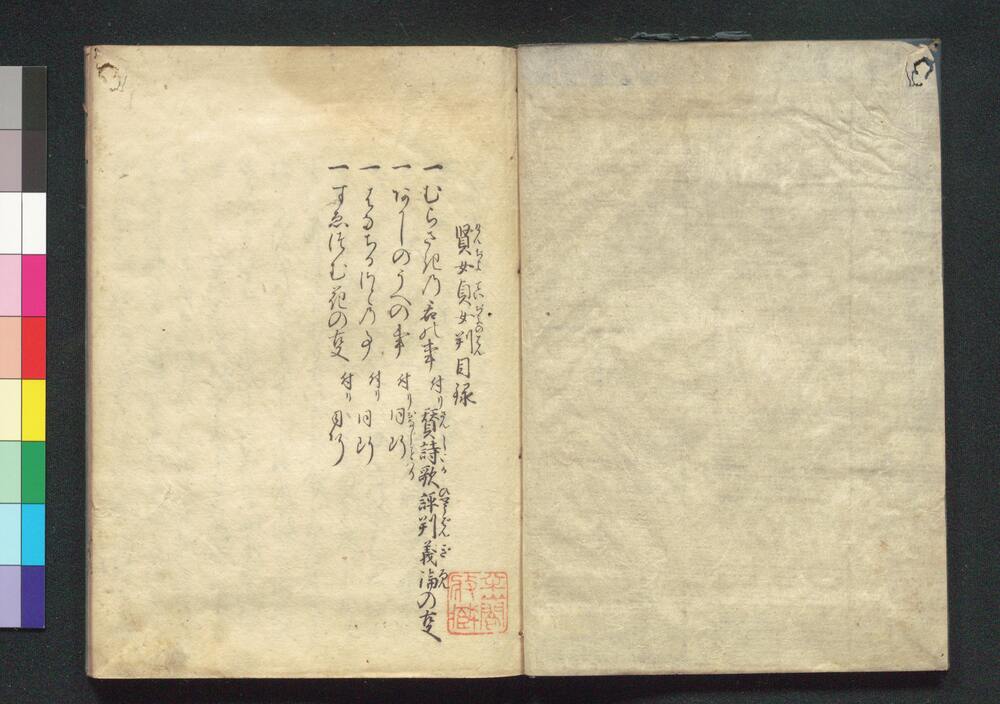 賢女貞女判目録
一むらさき乃君の事 付り 賛詩歌評判義論の事
一あかしのうへの事 付り 同断
一はなちるさとの事 付り 同断
一すゑつむ花の事 付り 同断